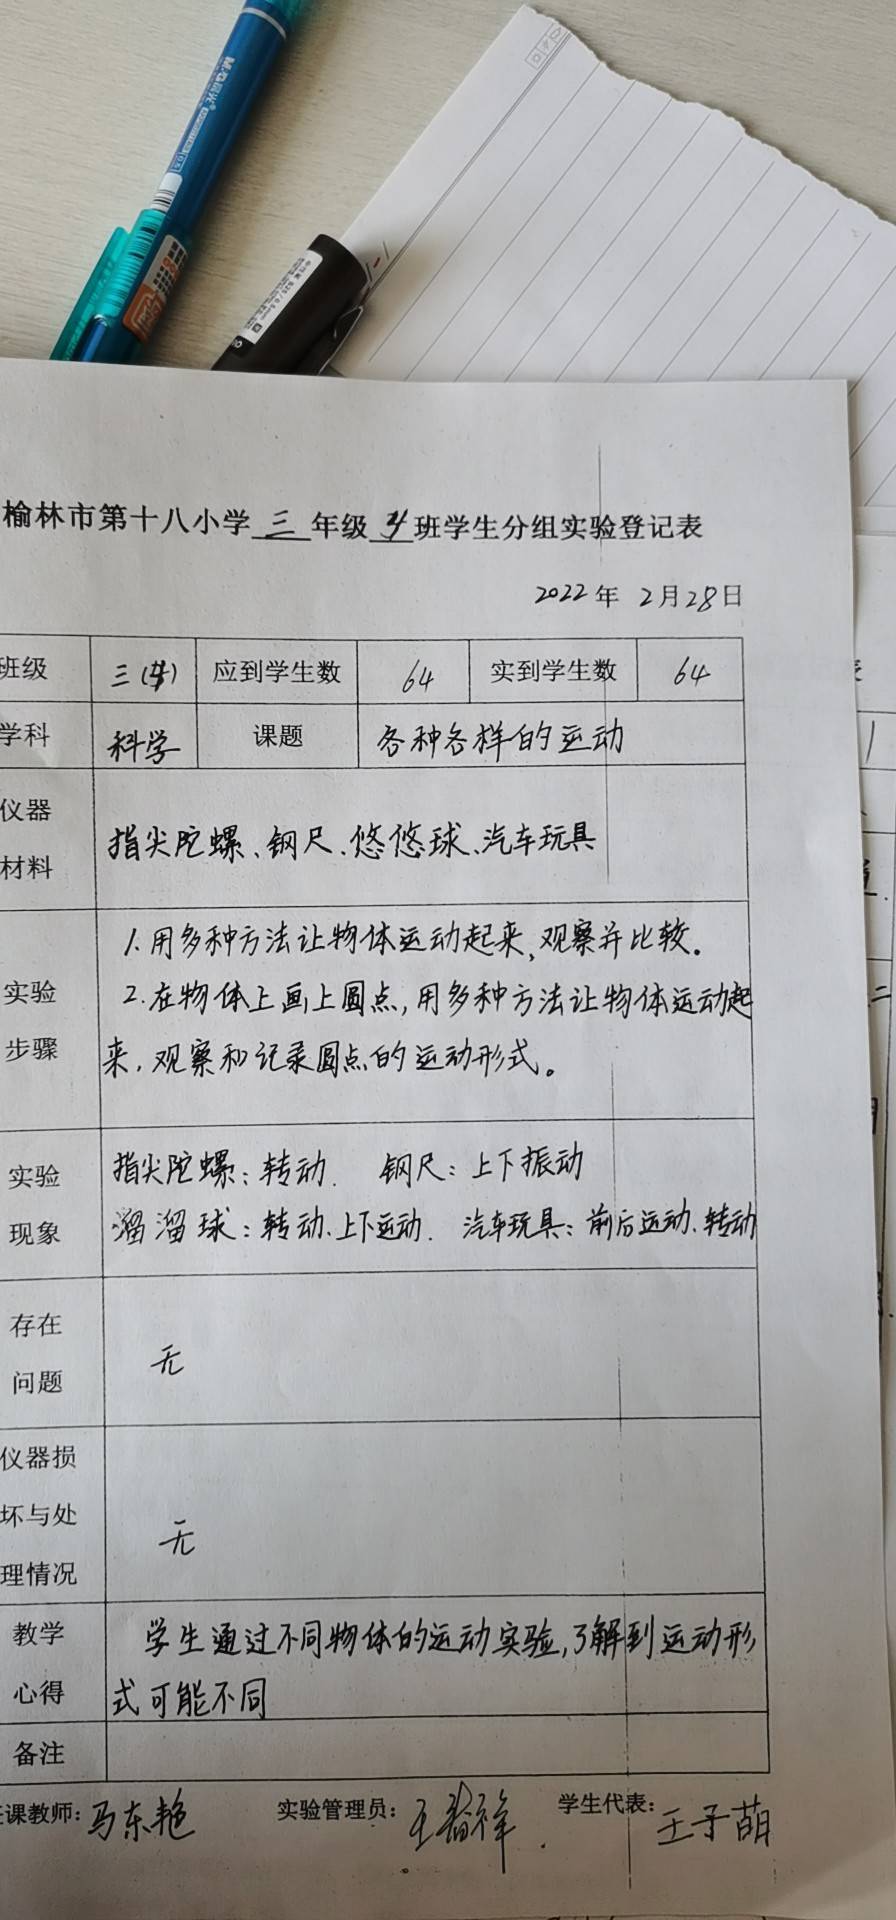 M&G晨光
榆林市第十八小学三年级4班学生分组实验登记表
2022年 2月28日
班级 三(4) 应到学生数 64 实到学生数 64
学科 科学 课题 各种各样的运动
仪器
材料
指尖陀螺、钢尺、悠悠球、汽车玩具
实验
步骤
1.用多种方法让物体运动起来,观察并比较。
2.在物体上画上圆点,用多种方法让物体运动起
来,观察和记录圆点的运动形式。
实验
现象
指尖陀螺:转动. 钢尺:上下振动
溜溜球:转动、上下运动. 汽车玩具:前后运动、转动
存在
问题
无
仪器损
坏与处
理情况
无
教学
心得
学生通过不同物体的运动实验,了解到运动形
式可能不同
备注
课教师:马东艳 实验管理员: 学生代表:王子萌